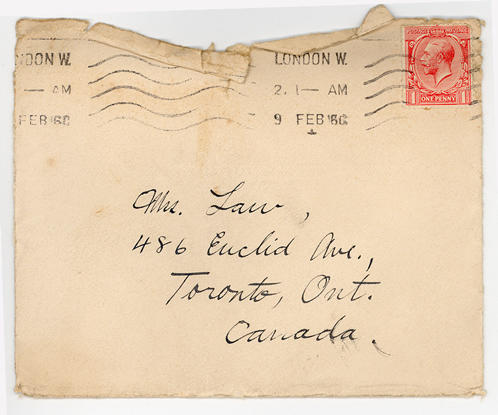 NDON W.
— AM
FEB 16C
LONDON W.
2. 1 — AM
9 FEB 16C
POSTAGE REVENUE
1 ONE PENNY 1
Mrs. Law,
486 Euclid Ave.,
Toronto, Ont.
Canada.